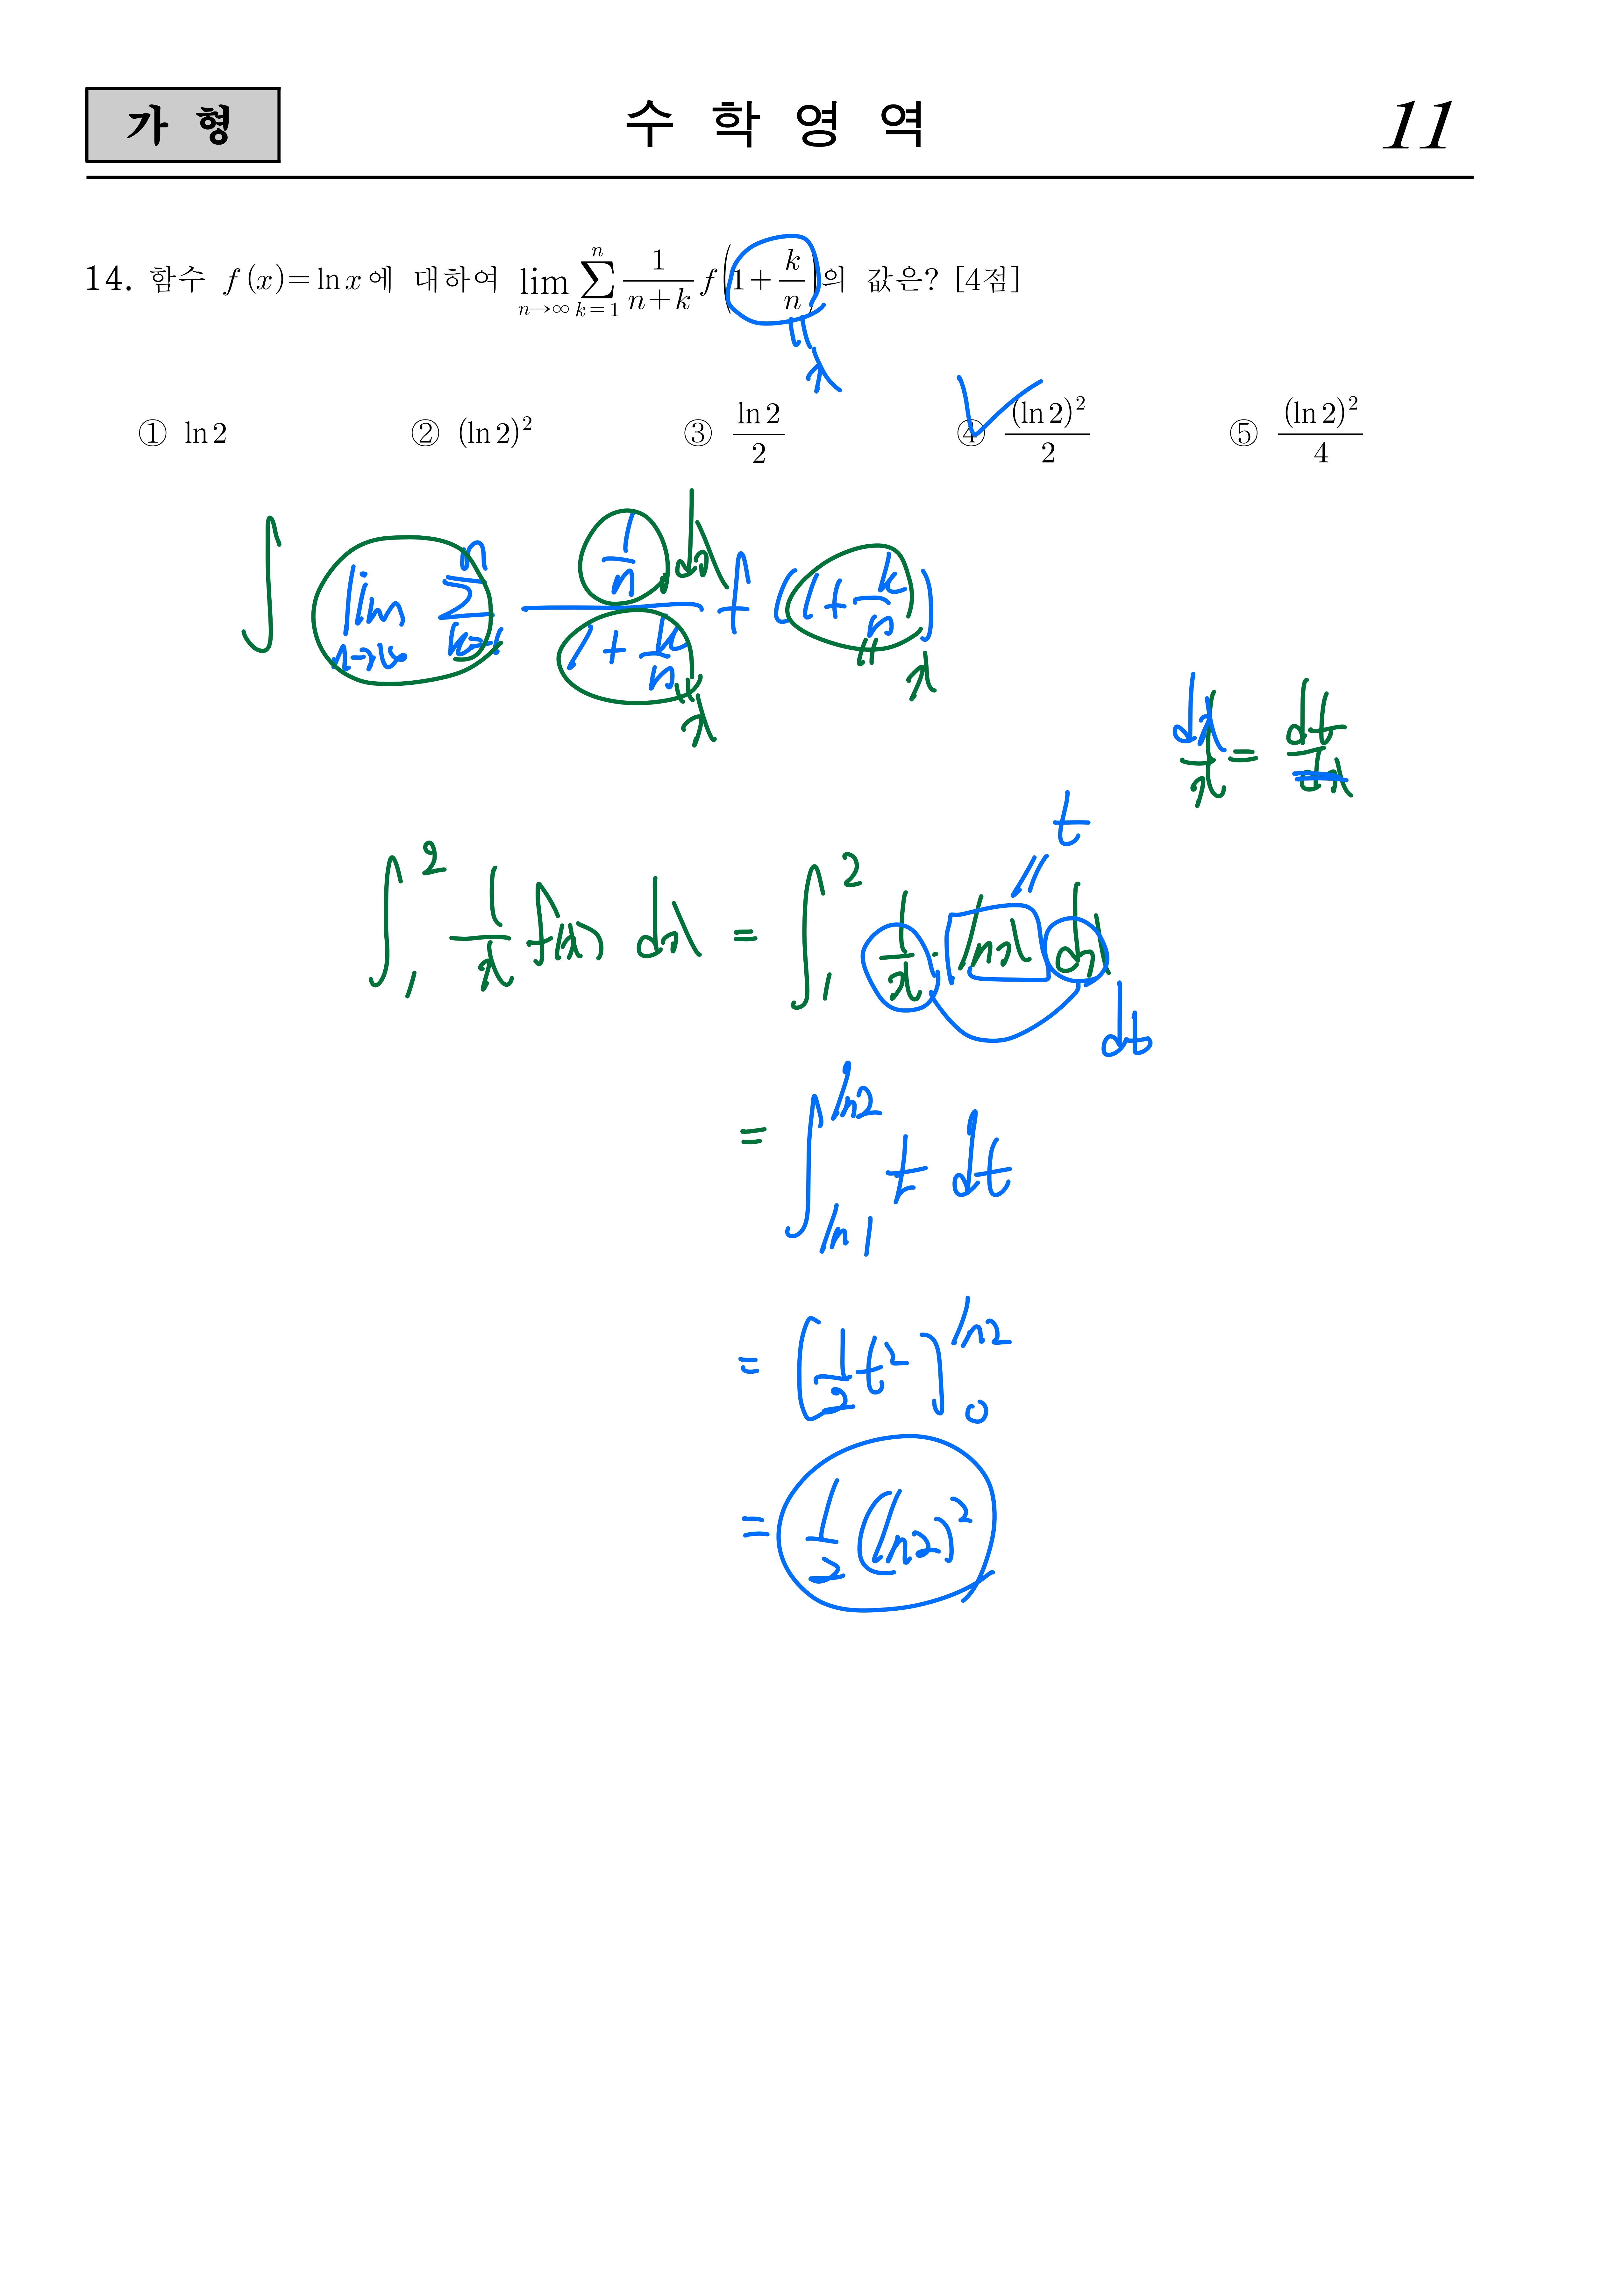 가 형 수 학 영 역 11
14. 함수 f(x)=ln x에 대하여 lim_{n→∞} Σ_{k=1}^{n} 1/(n+k) f(1+k/n)의 값은? [4점]
= x
① ln2 ② (ln2)² ③ ln2/2 ④ (ln2)²/2 ⑤ (ln2)²/4
∫ lim_{n→∞} Σ_{k=1}^{n} (1/n)/(1+k/n) dx f(1+k/n)
= x = x
dx/x = dt/dx
t
=
∫_1^2 1/x f(x) dx = ∫_1^2 1/x · lnx dx
dt
= ∫_{ln1}^{ln2} t dt
= [1/2 t²]_0^{ln2}
= 1/2 (ln2)²